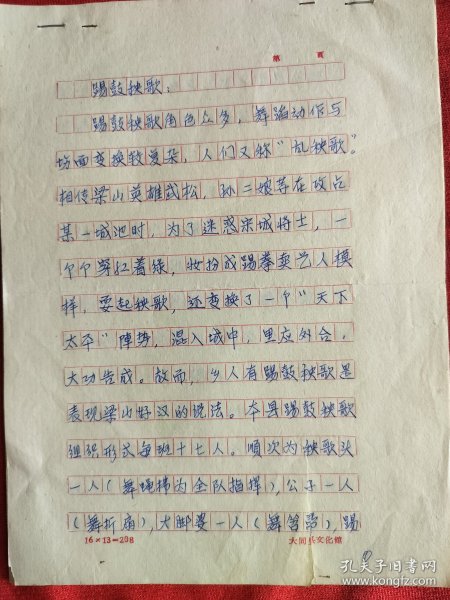 第 页
踢鼓秧歌:
踢鼓秧歌角色众多,舞蹈动作与
场面变换较复杂,人们又称"乱秧歌"。
相传梁山英雄武松,孙二娘等在攻占
某一城池时,为了迷惑宋城将士,一
个个穿红着绿,妆扮成踢拳卖艺人模
样,耍起秧歌,还变换了一个"天下
太平"阵势,混入城中,里应外合,
大功告成。故而,乡人有踢鼓秧歌是
表现梁山好汉的说法。本县踢鼓秧歌
组织形式每班十七人。顺次为秧歌头
一人(舞蝇拂为全队指挥),公子一人
(舞折扇),大脚婆一人(舞笤帚),踢
16×13=208
大同县文化馆
孔夫子旧书网
www.kongfz.com